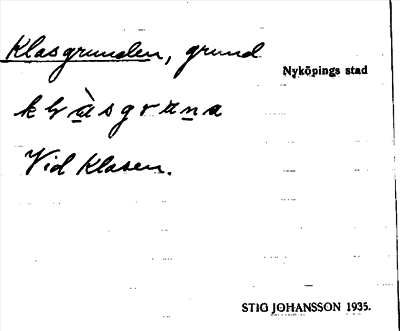 Klasgrunden, grund
Nyköpings stad
Vid Klasen.
STIG JOHANSSON 1935.